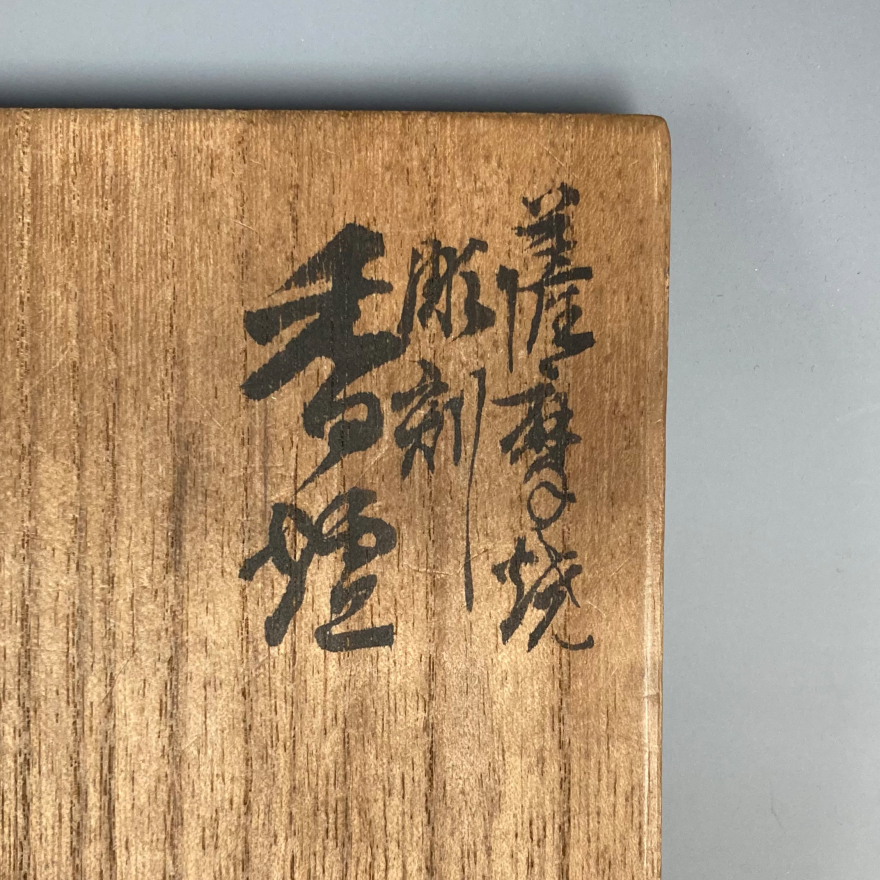 薩摩焼
彫刻
香爐